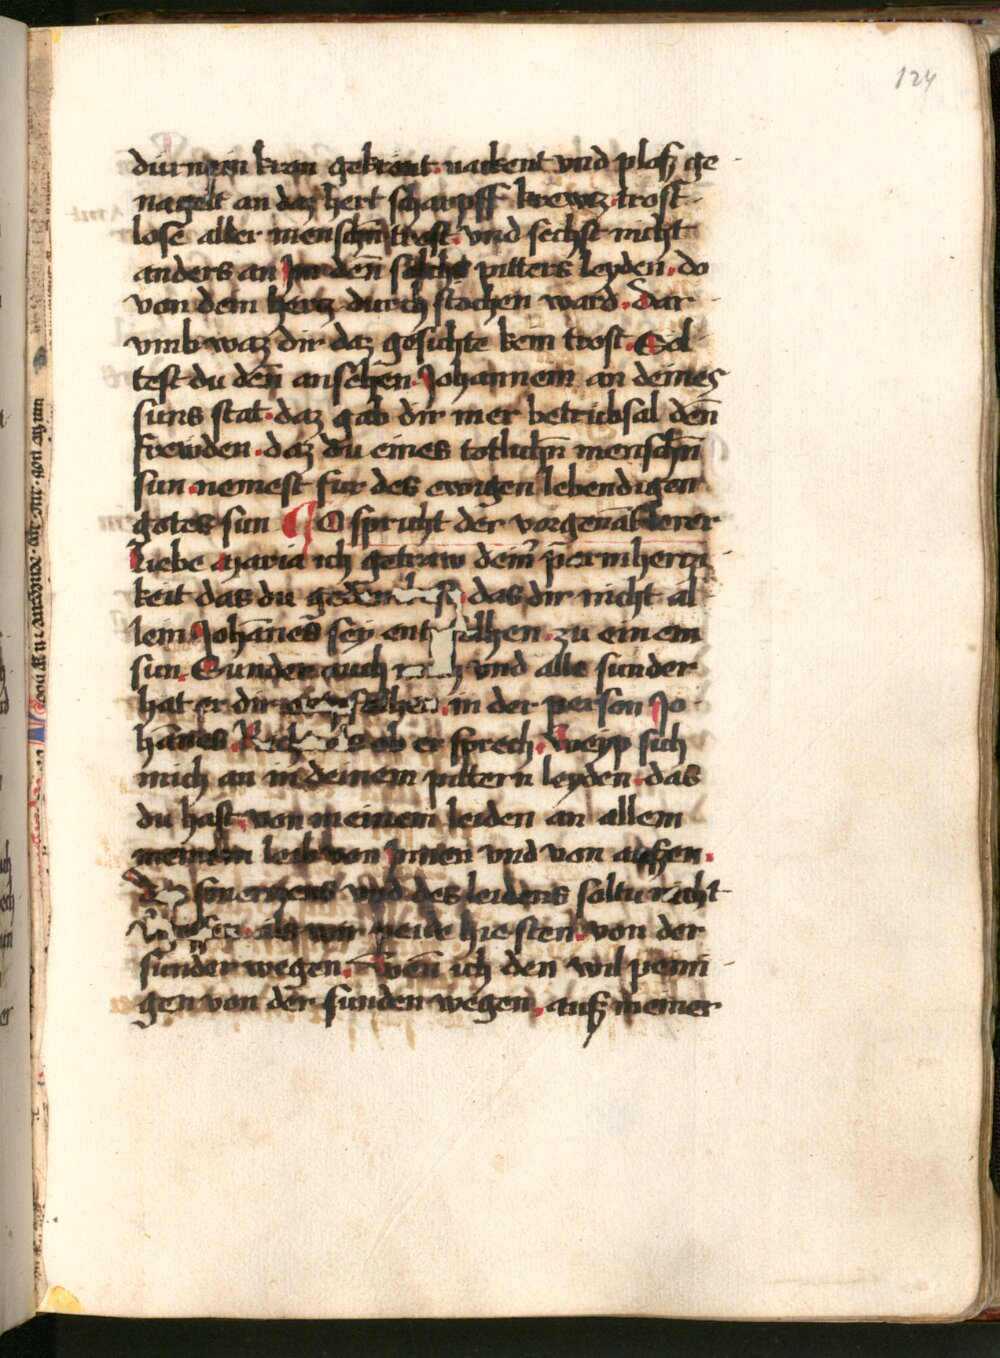 124
durnein kran gekrönt nackent vnd ploß ge
nagelt an daz hert scharpff krewz trost
lose aller menschñ trost vnd sechst nicht
anders an Im deñ solichs pitters leyden do
von dem hertz durch stochen ward dar
vmb waz dir daz gesichte kein trost Sol
test du deñ ansehen Johannem an deines
suns stat daz gab dir mer betrubsal deñ
frewden daz du eines totlichñ menschñ
sun nemest fur des ewigen lebendigen
gotes sun So spricht der vorgenãt lerer
Liebe maria ich getraw deiñ parmhertzi
keit das du das dir nicht al
lein Johãnes sey zu einem
sun Sunder auch vnd alle sunder
hat er dir in der person Jo
hãnes ob er sprech Weyp sich
mich an in deinem pittern leyden das
du hast von meinem leiden an allem
meinem leib von Innen vnd von aussen
smertzens vnd des leidens soltu nicht
als wir peide hie sten von der
sunder wegen Wen ich den wil peini
gen von der sunden wegen auß meiner